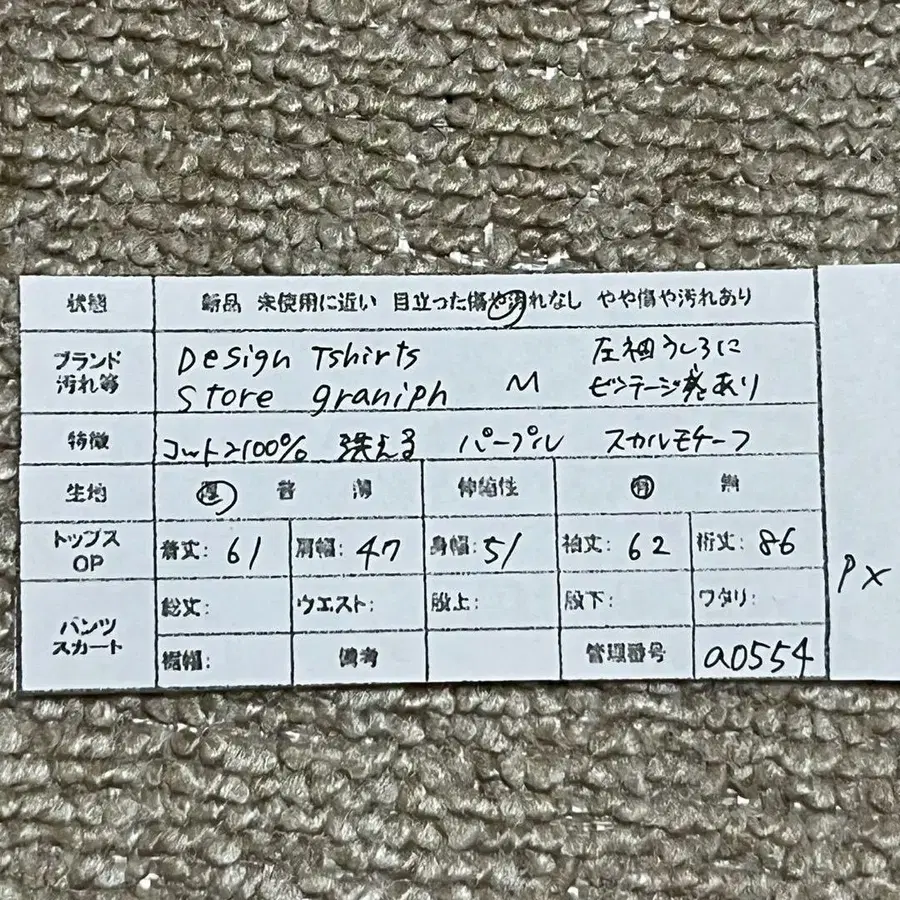 状態 新品 未使用に近い 目立った傷や汚れなし やや傷や汚れあり
ブランド Design Tshirts 左袖うしろに
汚れ等 Store graniph M ビンテージ感あり
特徴 コットン100% 洗える パープル スカルモチーフ
生地 厚 普 薄 伸縮性 有 無
トップス OP 着丈: 61 肩幅: 47 身幅: 51 袖丈: 62 裄丈: 86
パンツ スカート 総丈: ウエスト: 股上: 股下: ワタリ:
裾幅: 備考 管理番号 a0554
PX